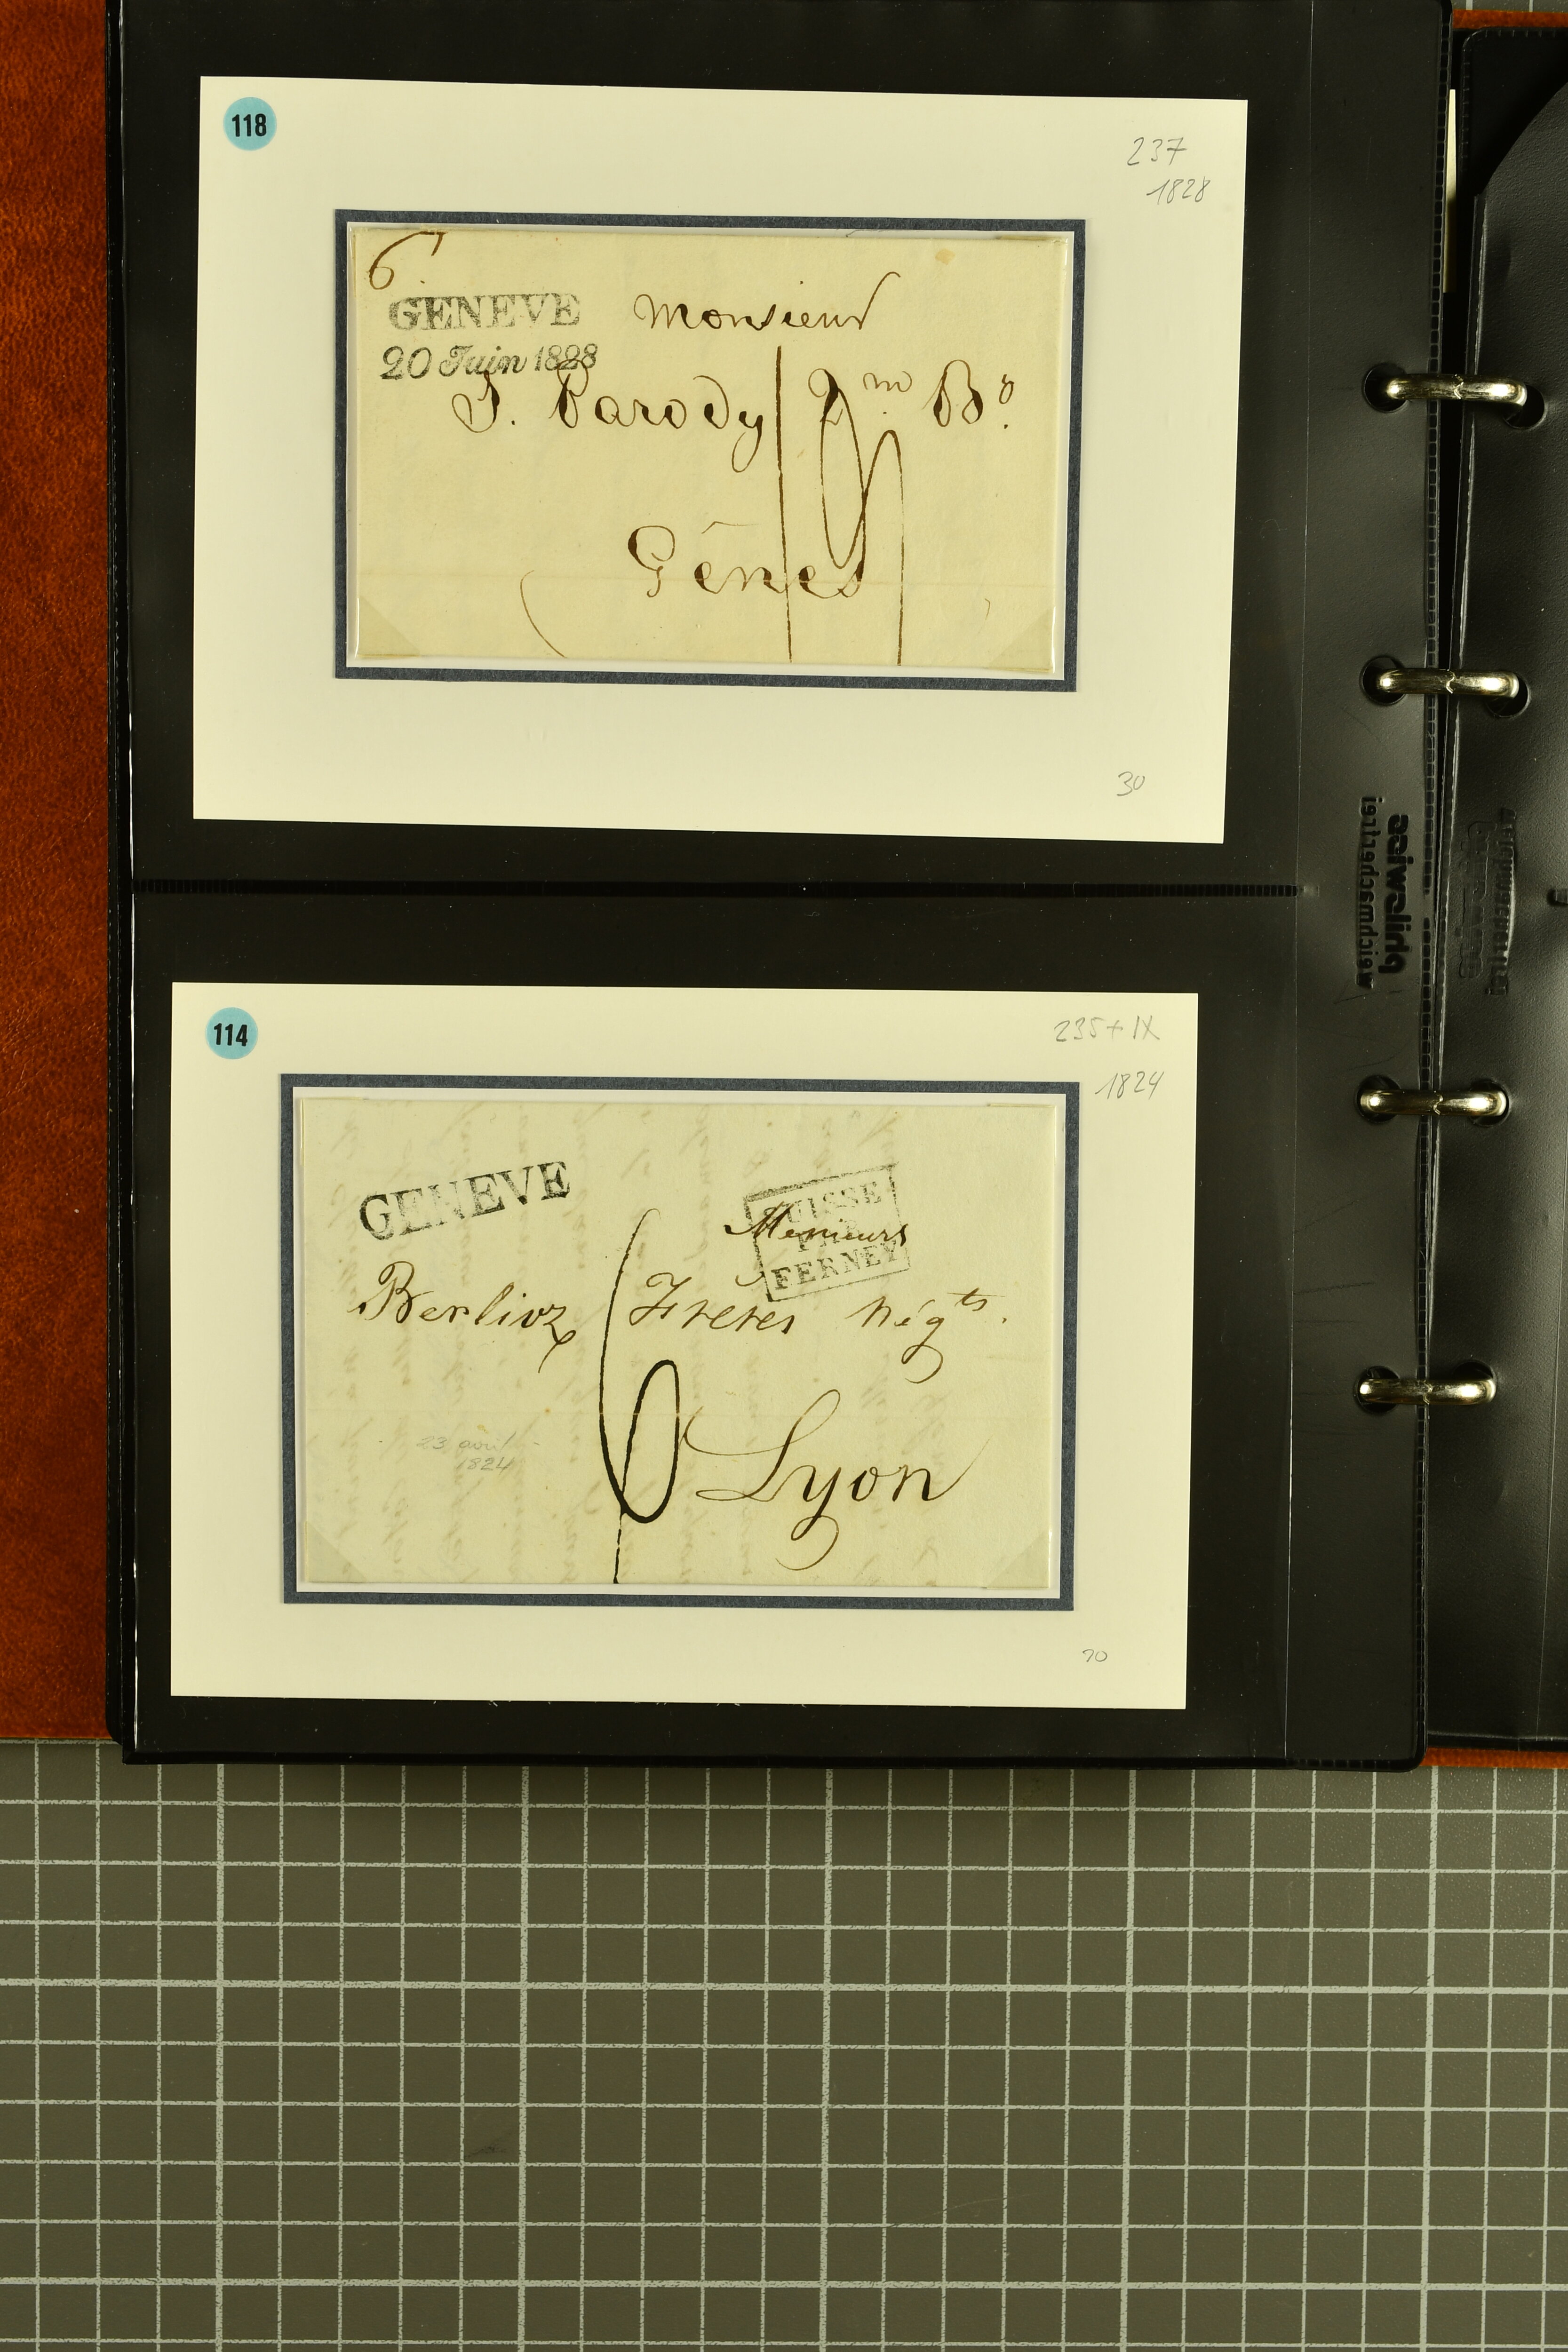 118
237
1828
6
GENEVE
20 Juin 1828
Monsieur
J. Parody qm Bo.
Gênes
30
philswiss
weichmacherfrei
114
235 + IX
1824
GENEVE
SUISSE
PAR
FERNEY
Messieurs
Berlioz Frères Négts.
6
23 avril
1824
Lyon
70